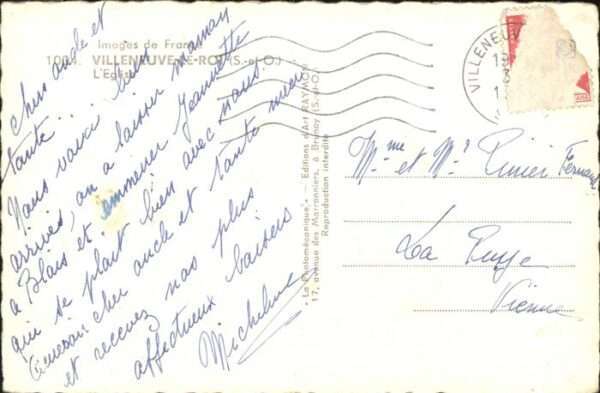 Images de France
1004. VILLENEUVE-LE-ROI (S.-et-O.)
L'Eglise
chers oncle et
tante... 
Nous voici bien
arrivés, on a laisser maman
à Blois et emmener Jeannette
qui se plait bien avec nous.
cher oncle et tante merci
et recevez nos plus
affectueux baisers
Micheline
"La Photomécanique" - Editions d'Art RAYMON
17, avenue des Marronniers, à Brunoy (S.-et-O.)
Reproduction interdite
VILLENEUV
19
Mme et Mr Rivier Fernand
La Puye
Vienne